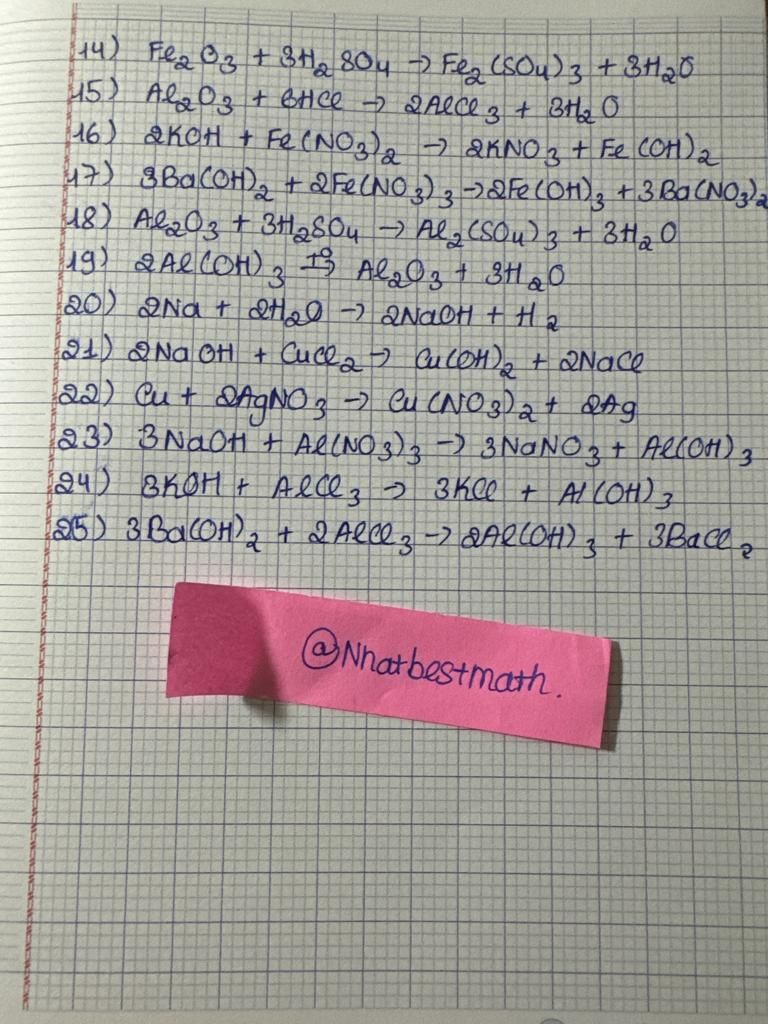 14) Fe₂O₃ + 3H₂SO₄ → Fe₂(SO₄)₃ + 3H₂O
15) Al₂O₃ + 6HCl → 2AlCl₃ + 3H₂O
16) 2KOH + Fe(NO₃)₂ → 2KNO₃ + Fe(OH)₂
17) 3Ba(OH)₂ + 2Fe(NO₃)₃ → 2Fe(OH)₃ + 3Ba(NO₃)₂
18) Al₂O₃ + 3H₂SO₄ → Al₂(SO₄)₃ + 3H₂O
19) 2Al(OH)₃ →(t°) Al₂O₃ + 3H₂O
20) 2Na + 2H₂O → 2NaOH + H₂
21) 2NaOH + CuCl₂ → Cu(OH)₂ + 2NaCl
22) Cu + 2AgNO₃ → Cu(NO₃)₂ + 2Ag
23) 3NaOH + Al(NO₃)₃ → 3NaNO₃ + Al(OH)₃
24) 3KOH + AlCl₃ → 3KCl + Al(OH)₃
25) 3Ba(OH)₂ + 2AlCl₃ → 2Al(OH)₃ + 3BaCl₂
@Nhatbestmath.